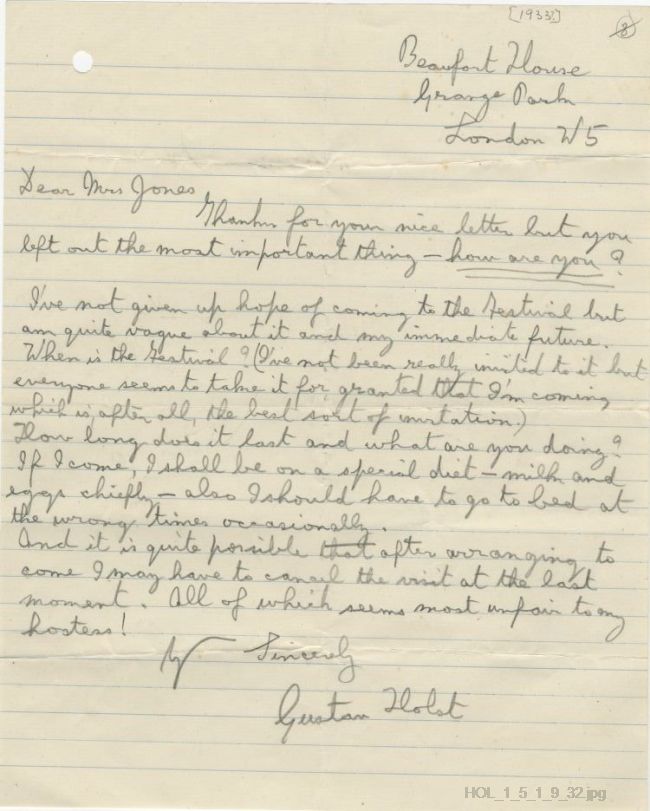 [1933?]
8
Beaufort House
Grange Park
London W5
Dear Mrs Jones
Thanks for your nice letter but you
left out the most important thing – how are you?
I've not given up hope of coming to the Festival but
am quite vague about it and my immediate future.
When is the Festival? (I've not been really invited to it but
everyone seems to take it for granted that I'm coming
which is, after all, the best sort of invitation.)
How long does it last and what are you doing?
If I come, I shall be on a special diet – milk and
eggs chiefly – also I should have to go to bed at
the wrong times occasionally.
And it is quite possible that after arranging to
come I may have to cancel the visit at the last
moment. All of which seems most unfair to my
hostess!
Yr Sincerely
Gustav Holst
HOL_1_5_1_9_32.jpg